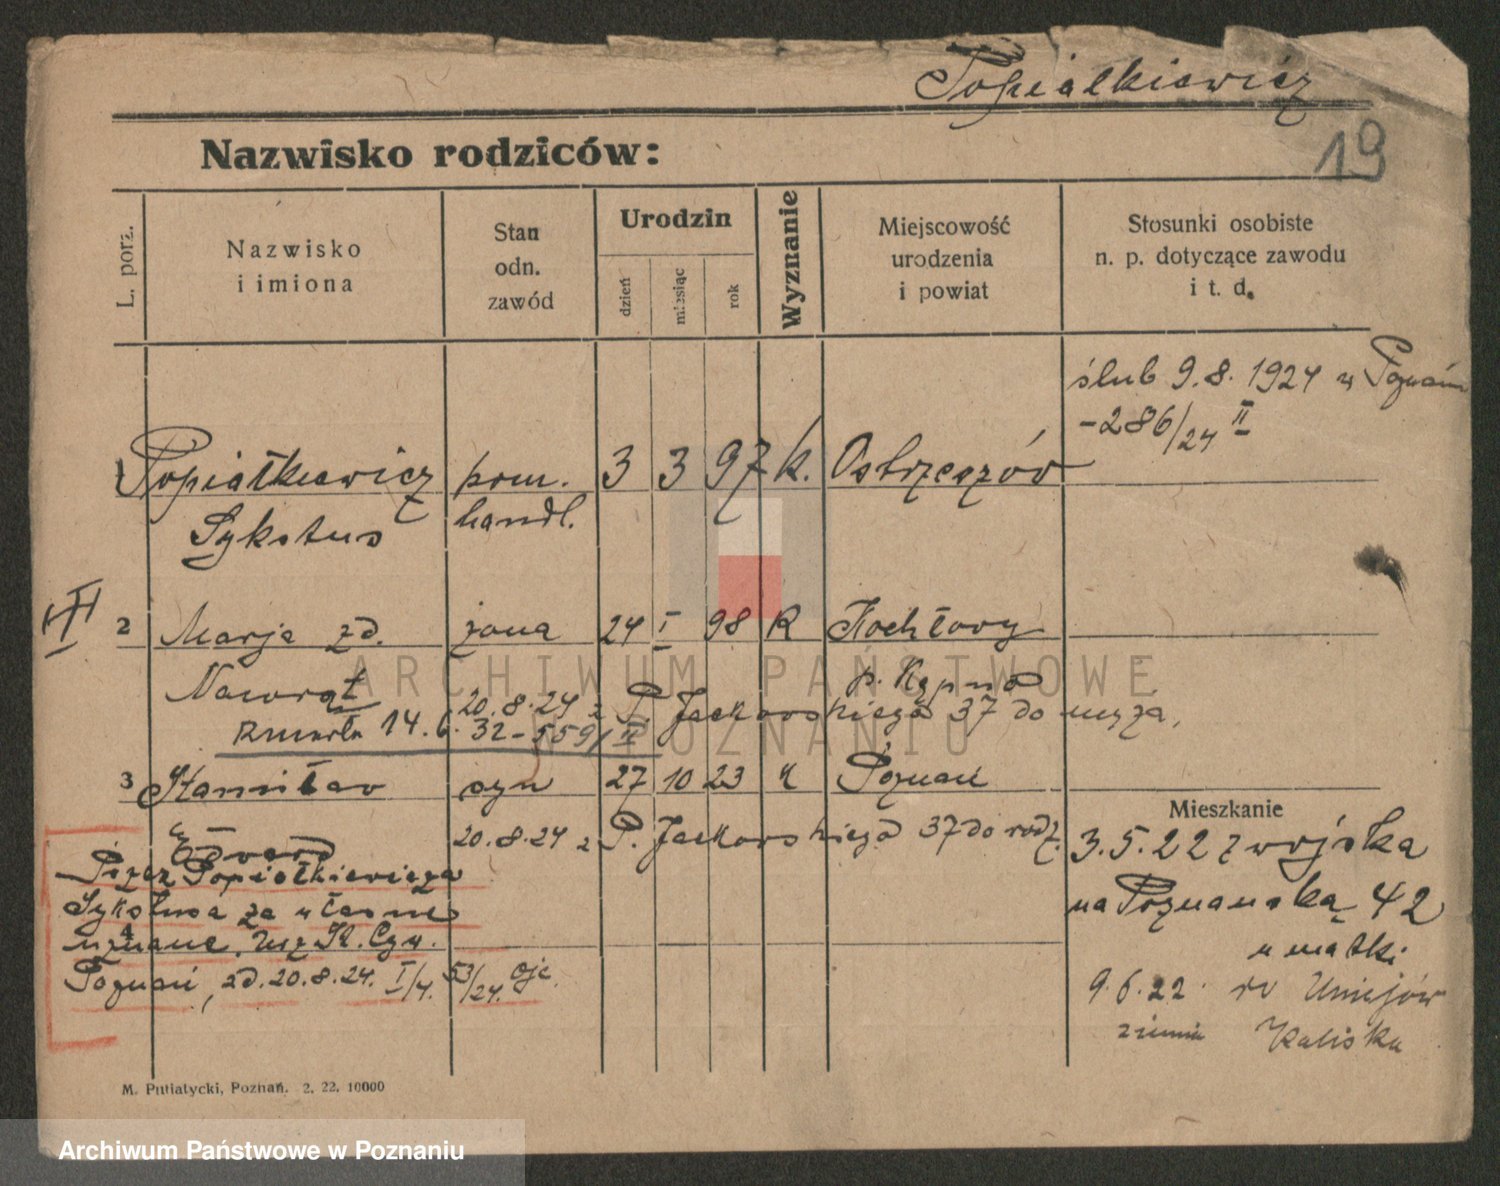 Popiałkiewicz
19
Nazwisko rodziców:
L. porz.
Nazwisko
i imiona
Stan
odn.
zawód
Urodzin
dzień
miesiąc
rok
Wyznanie
Miejscowość
urodzenia
i powiat
Stosunki osobiste
n. p. dotyczące zawodu
i t. d.
ślub 9.8.1924 w Poznaniu
-286/24 II
1 Popiałkiewicz pom. 3 3 97 k. Ostrzeszów
Sykstus handl.
III
2 Marja zd. żona 24 I 98 k Kochłowy
Nawrat p. Kępno
20.8.24 z P. Jackowskiego 37 do męża,
zmarła 14.6.32-559/II
3 Stanisław syn 27 10 23 k Poznań
Edward 20.8.24 z P. Jackowskiego 37 do rodz.
Przez Popiałkiewicza
Sykstusa za własne
4
uznane. Urz. St. Cyw.
Poznań, zd. 20.8.24. I/4. 53/24. ojc.
Mieszkanie
3.5.22 z wojska
na Poznańską 42
u matki
9.6.22. do Uniejów
ziemia Kaliska
M. Putiatycki, Poznań. 2. 22. 10000
ARCHIWUM PAŃSTWOWE
W POZNANIU
Archiwum Państwowe w Poznaniu